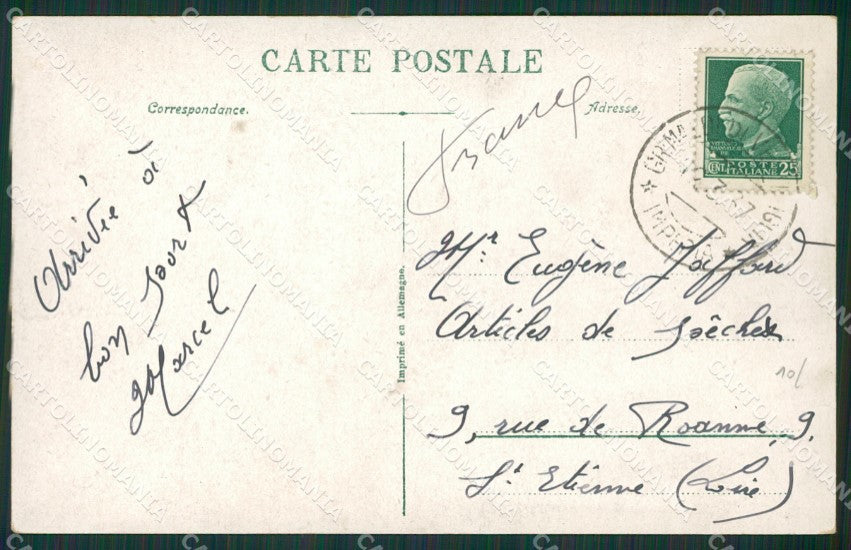 CARTE POSTALE
Correspondance.
Adresse.
France
Arrivée à
bon port
Marcel
Mr Eugène Jaffard
Articles de pêche
9, rue de Roanne, 9.
St Etienne (Loire)
10/
Imprimé en Allemagne.
POSTE
CENT. ITALIANE 25
GRIMALDI
CARTOLINOMANIA